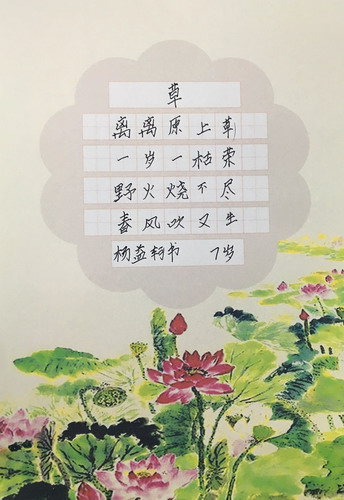 草
离离原上草
一岁一枯荣
野火烧不尽
春风吹又生
杨益轲书 7岁